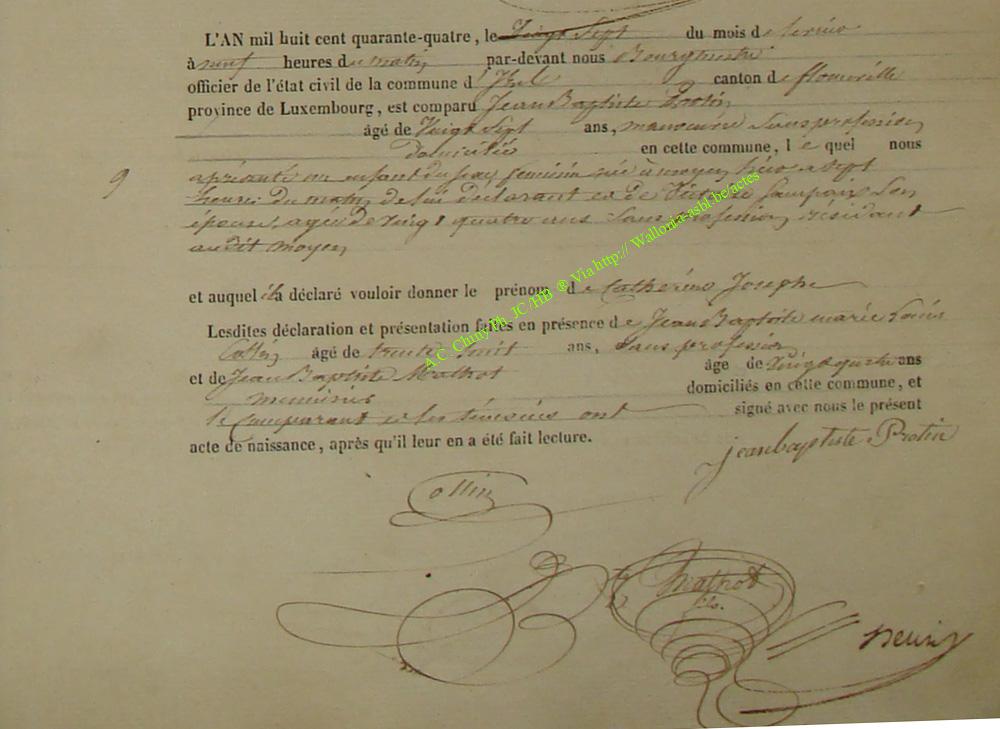 L'AN mil huit cent quarante-quatre, le Vingt Sept du mois de fevrier
à neuf heures du matin par-devant nous Bourgmestre
officier de l'état civil de la commune d' Izel canton de florenville
province de Luxembourg, est comparu Jean Baptiste Protin
âgé de Vingt Sept ans, manoeuvre Sans profession
Domicilié en cette commune, le quel nous
9 a présenté un enfant du sexe feminin née à moyen hier a Sept
heures du matin de lui déclarant et de Son
épouse, agée de vingt quatre ans Sans profession résidant
audit moyen
et auquel il a déclaré vouloir donner le prénom de Catherine Josephe
Lesdites déclaration et présentation faites en présence de Jean Baptiste marie Louis
Collin âgé de trente huit ans, Sans profession
et de Jean Baptiste Mathot âgé de Vingt quatre ans
menuisier domiciliés en cette commune, et
le Comparant et les témoins ont signé avec nous le présent
acte de naissance, après qu'il leur en a été fait lecture.
jean baptiste Protin
Collin
Mathot
fils.
henri
A.C. Chiny Ph. JC/HB ® Via http:// Wallonia-asbl.be/actes